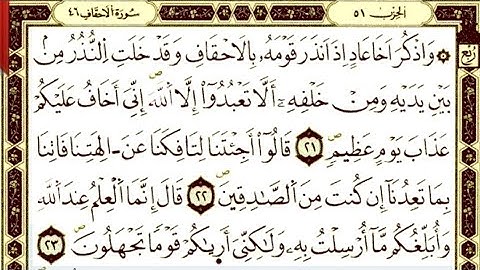 الحِزب ٥١
سُورَة الاَحقاف ٤٦
ربع
وَاذْكُرَ اَخَا عَادٍ اِذَ اَنذَرَ قَوْمَهُۥ بِالَاحْقَافِ وَقَدْ خَلَتِ اِ۬لنُّذُرُ مِنۢ
بَيْنِ يَدَيْهِ وَمِنْ خَلْفِهِۦٓ أَلَّا تَعْبُدُوٓا۟ إِلَّا اَ۬للَّهَ إِنِّيَ أَخَافُ عَلَيْكُمْ
عَذَابَ يَوْمٍ عَظِيمٍ ٢١ قَالُوٓا۟ أَجِئْتَنَا لِتَافِكَنَا عَنَ ـ الِهَتِنَا فَاتِنَا
بِمَا تَعِدُنَآ إِن كُنتَ مِنَ اَ۬لصَّـٰدِقِينَ ٢٢ قَالَ إِنَّمَا اَ۬لْعِلْمُ عِندَ اَ۬للَّهِ
وَأُبَلِّغُكُم مَّآ أُرْسِلْتُ بِهِۦ وَلَـٰكِنِّيَ أَر۪يٰكُمْ قَوْماً تَجْهَلُونَ ٢٣